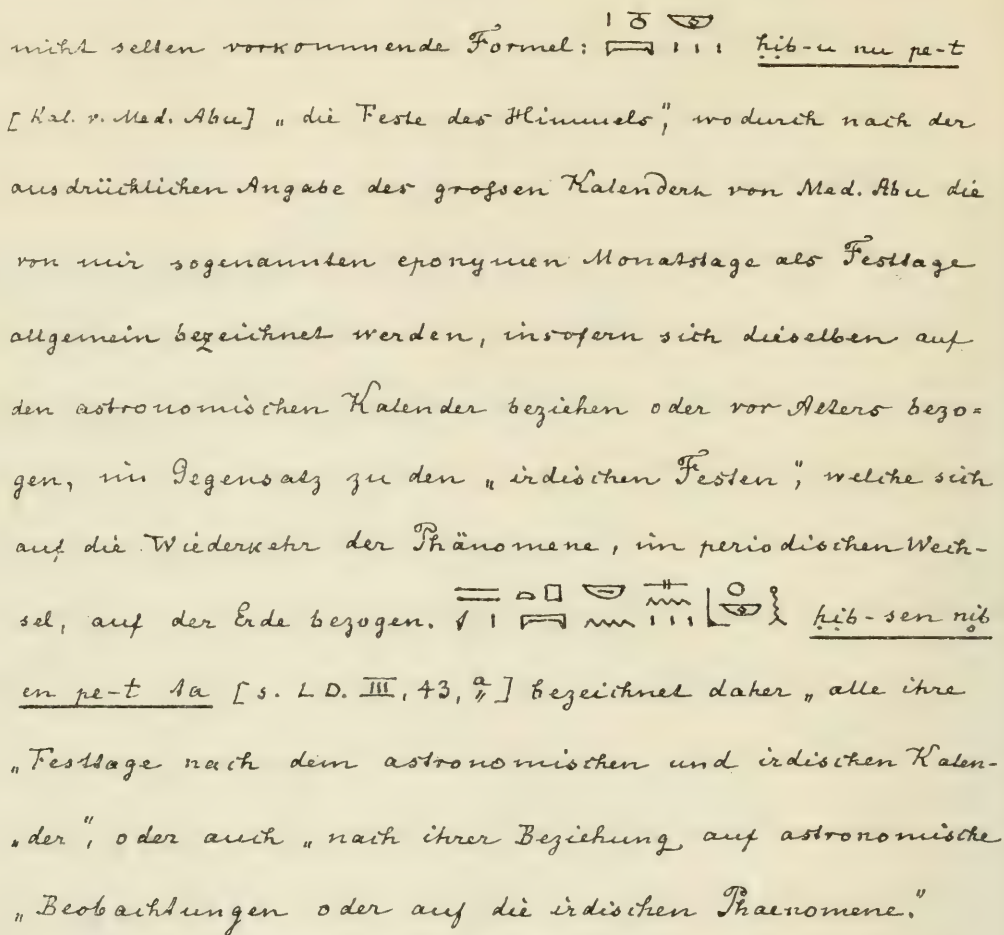 nicht selten vorkommende Formel: ḥib-u nu pe-t
[Kal. v. Med. Abu] „die Feste des Himmels“, wodurch nach der
ausdrücklichen Angabe des grossen Kalenders von Med. Abu die
von mir sogenannten eponymen Monatstage als Festtage
allgemein bezeichnet werden, insofern sich dieselben auf
den astronomischen Kalender beziehen oder vor Alters bezo=
gen, im Gegensatz zu den „irdischen Festen“, welche sich
auf die Wiederkehr der Phänomene, im periodischen Wech-
sel, auf der Erde bezogen. ḥib-sen nib
en pe-t ta [s. L D. III, 43, a] bezeichnet daher „alle ihre
„Festtage nach dem astronomischen und irdischen Kalen-
„der“, oder auch „nach ihrer Beziehung auf astronomische
„Beobachtungen oder auf die irdischen Phaenomene.“